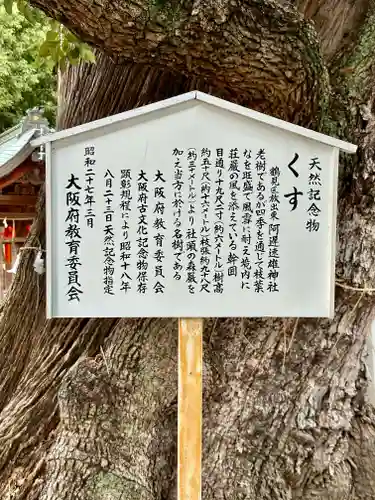 天然記念物
くす
鶴見区放出東 阿遅速雄神社
老樹であるが四季を通じて枝葉
なを斑生て風霊に耐え境内に
荘厳の風を添えている 幹囲
目通り十九尺二寸（約六メートル）樹高
約五十尺（約十六メートル）枝張約九十八尺
（約三十メートル）により社頭の森厳を
加え当方に於ける名樹である
大阪府教育委員会
大阪府古文化記念物保存
顕彰規程により昭和十八年
八月二十三日天然記念物指定
昭和二十七年三月
大阪府教育委員会